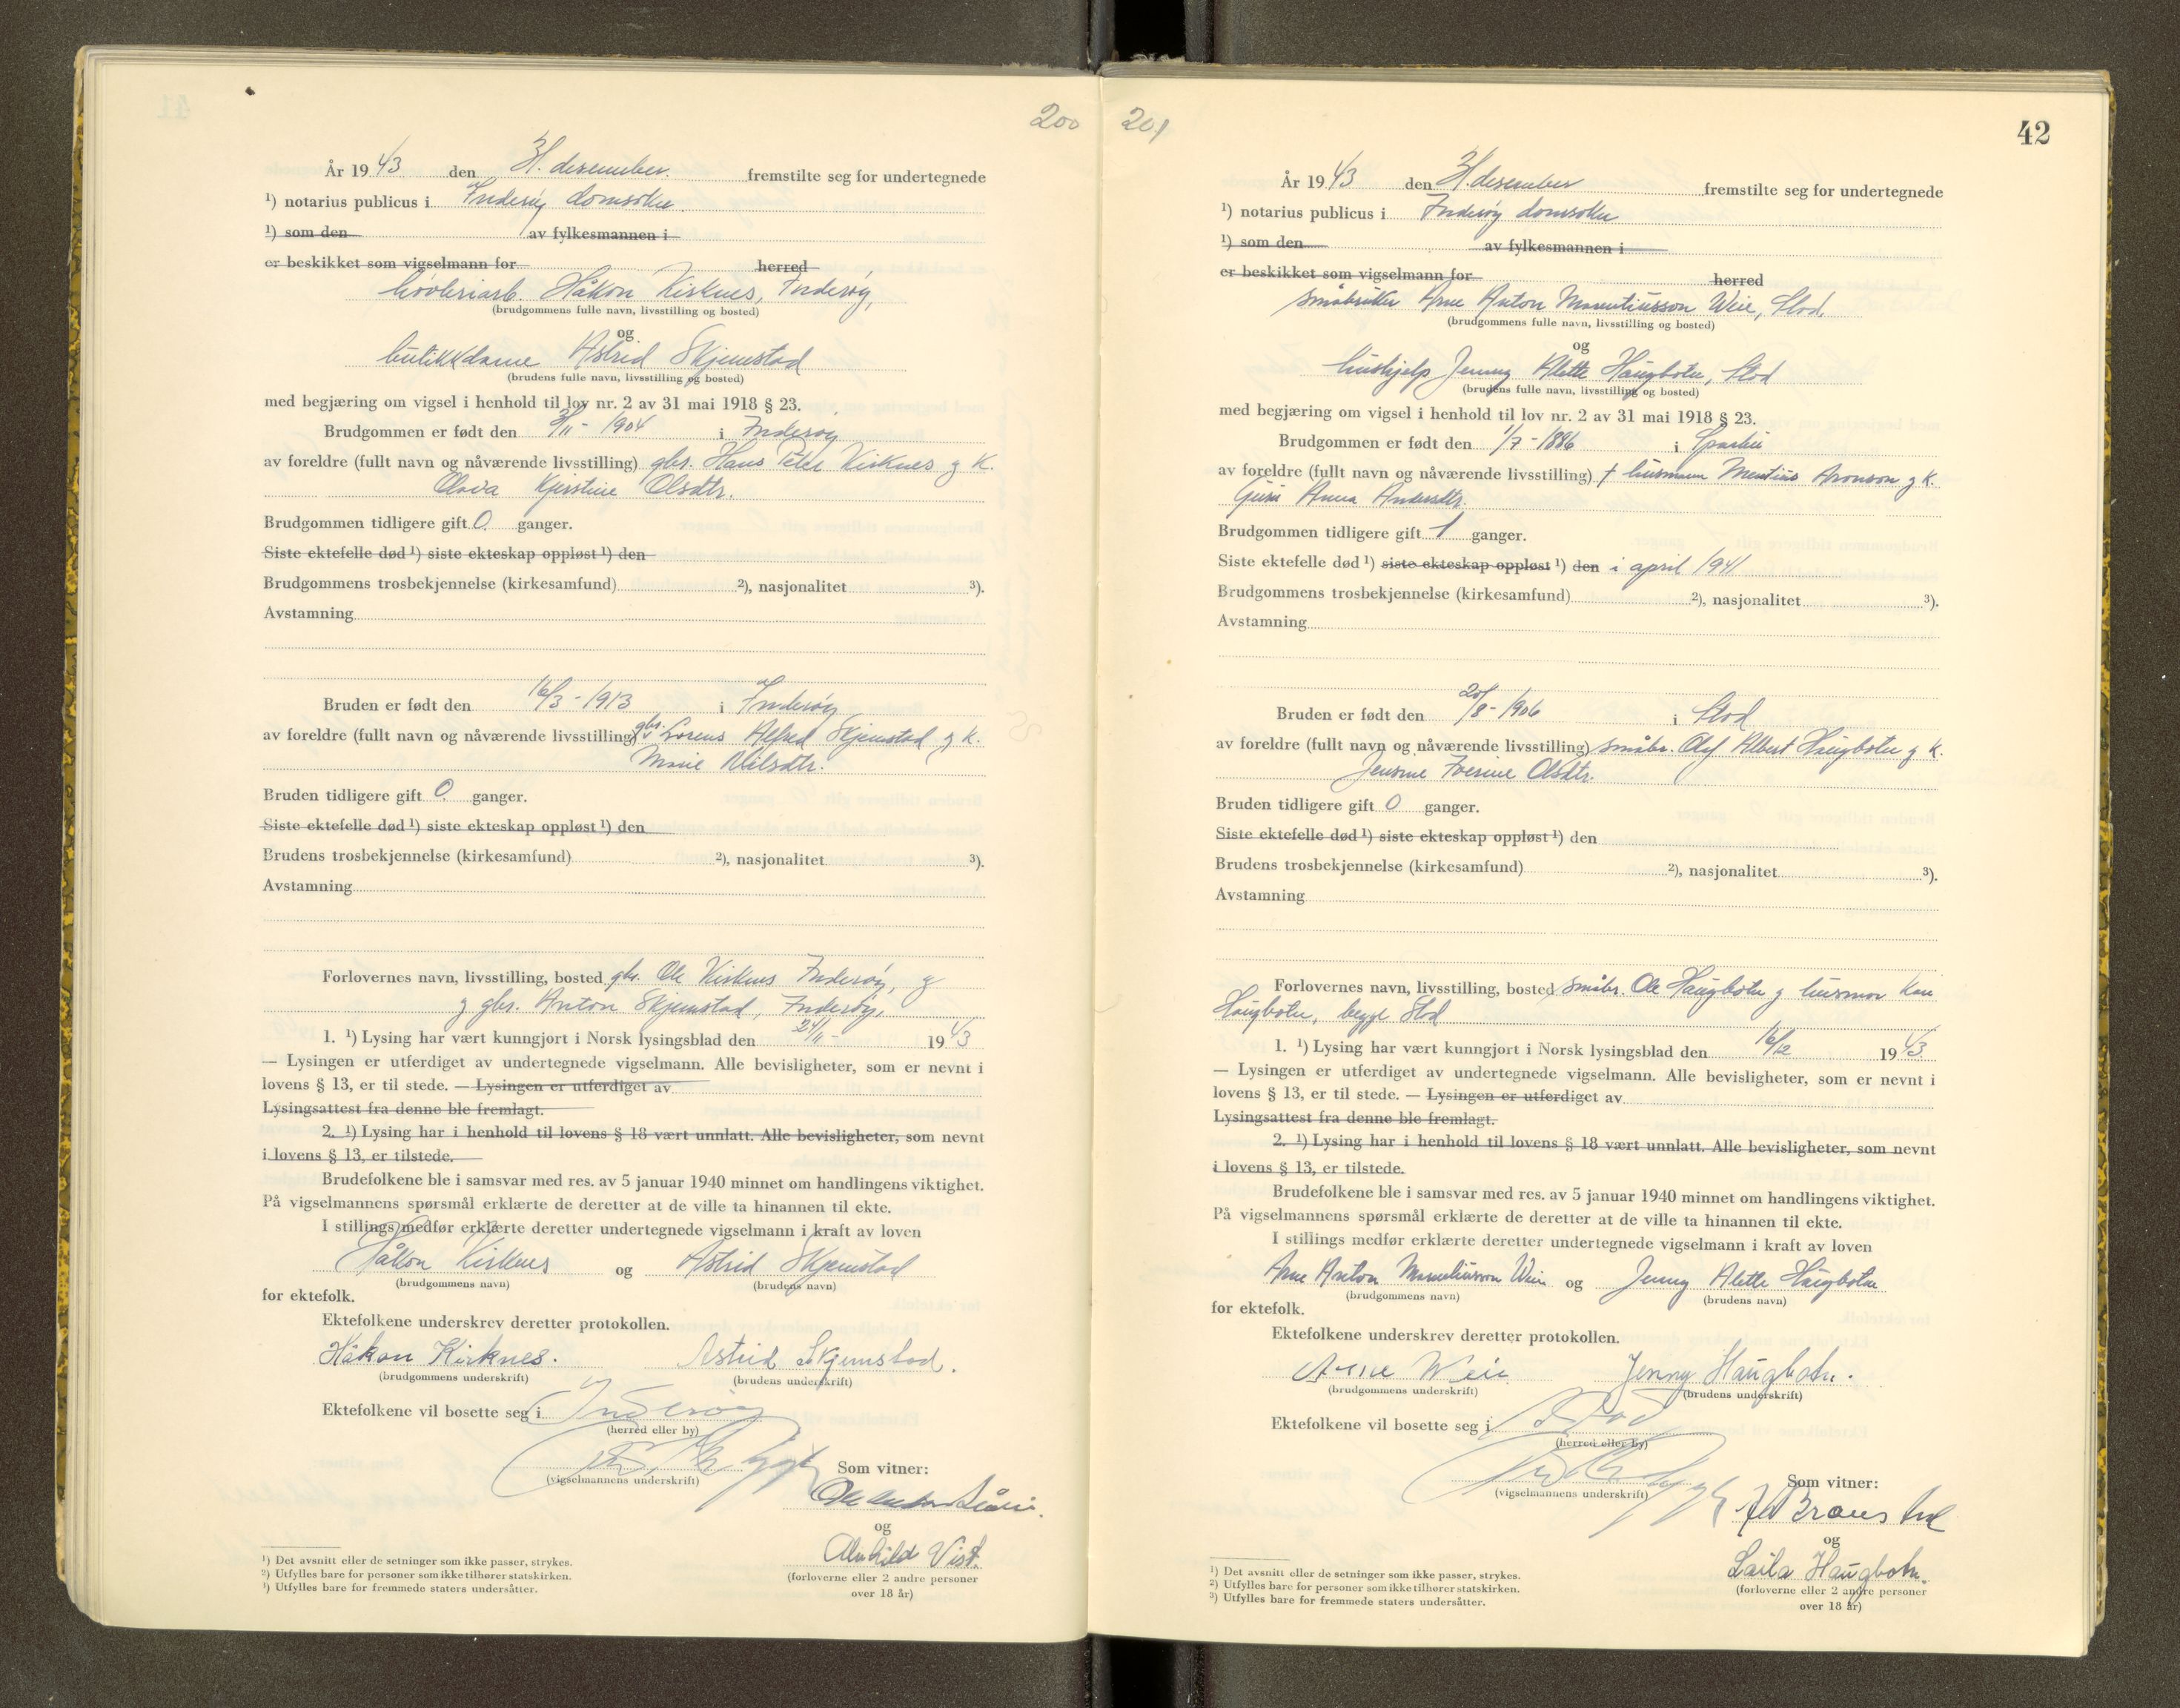 200
År 1943 den 31. desember. fremstilte seg for undertegnede
¹) notarius publicus i Inderøy domsokn
¹) som den av fylkesmannen i
er beskikket som vigselmann for herred
høvleriarb. Håkon Kirknes, Inderøy,
(brudgommens fulle navn, livsstilling og bosted)
og
butikkdame Astrid Skjemstad
(brudens fulle navn, livsstilling og bosted)
med begjæring om vigsel i henhold til lov nr. 2 av 31 mai 1918 § 23.
Brudgommen er født den /11 - 1904 i Inderøy
av foreldre (fullt navn og nåværende livsstilling) gbr. Hans Peter Kirknes og k.
Olava Kjerstine Olsdtr.
Brudgommen tidligere gift 0 ganger.
Siste ektefelle død ¹) siste ekteskap oppløst ¹) den
Brudgommens trosbekjennelse (kirkesamfund) ²), nasjonalitet ³).
Avstamning
Bruden er født den 16/3 - 1913 i Inderøy
av foreldre (fullt navn og nåværende livsstilling) gbr. Lorens Alfred Skjemstad og k.
Marie Nilsdtr.
Bruden tidligere gift 0 ganger.
Siste ektefelle død ¹) siste ekteskap oppløst ¹) den
Brudens trosbekjennelse (kirkesamfund) ²), nasjonalitet ³).
Avstamning
Forlovernes navn, livsstilling, bosted gbr. Ole Kirknes Inderøy, og
og gbr. Anton Skjemstad, Inderøy,
1. ¹) Lysing har vært kunngjort i Norsk lysingsblad den 24/11 - 1943
— Lysingen er utferdiget av undertegnede vigselmann. Alle bevisligheter, som er nevnt i
lovens § 13, er til stede. — Lysingen er utferdiget av
Lysingsattest fra denne ble fremlagt.
2. ¹) Lysing har i henhold til lovens § 18 vært unnlatt. Alle bevisligheter, som nevnt
i lovens § 13, er tilstede.
Brudefolkene ble i samsvar med res. av 5 januar 1940 minnet om handlingens viktighet.
På vigselmannens spørsmål erklærte de deretter at de ville ta hinannen til ekte.
I stillings medfør erklærte deretter undertegnede vigselmann i kraft av loven
Håkon Kirknes og Astrid Skjemstad
(brudgommens navn) (brudens navn)
for ektefolk.
Ektefolkene underskrev deretter protokollen.
Håkon Kirknes. Astrid Skjemstad.
(brudgommens underskrift) (brudens underskrift)
Ektefolkene vil bosette seg i Inderøy
(herred eller by)
(vigselmannens underskrift)
Som vitner:
og
Alvhild Vist.
(forloverne eller 2 andre personer
over 18 år)
¹) Det avsnitt eller de setninger som ikke passer, strykes.
²) Utfylles bare for personer som ikke tilhører statskirken.
³) Utfylles bare for fremmede staters undersåtter.
201
42
År 1943 den 31. desember fremstilte seg for undertegnede
¹) notarius publicus i Inderøy domsokn
¹) som den av fylkesmannen i
er beskikket som vigselmann for herred
småbruker Arne Anton Weie, Stod,
(brudgommens fulle navn, livsstilling og bosted)
og
hushjelp Jenny Alette Haugbotn, Stod
(brudens fulle navn, livsstilling og bosted)
med begjæring om vigsel i henhold til lov nr. 2 av 31 mai 1918 § 23.
Brudgommen er født den 1/7 - 1886 i Sparbu
av foreldre (fullt navn og nåværende livsstilling) † husmann Mentius Aronson og k.
Guru Anna Andersdtr.
Brudgommen tidligere gift 1 ganger.
Siste ektefelle død ¹) siste ekteskap oppløst ¹) den i april 1941
Brudgommens trosbekjennelse (kirkesamfund) ²), nasjonalitet ³).
Avstamning
Bruden er født den 20/8 - 1906 i Stod
av foreldre (fullt navn og nåværende livsstilling) småbr. Olaf Albert Haugbotn og k.
Jensine Iverine Olsdtr.
Bruden tidligere gift 0 ganger.
Siste ektefelle død ¹) siste ekteskap oppløst ¹) den
Brudens trosbekjennelse (kirkesamfund) ²), nasjonalitet ³).
Avstamning
Forlovernes navn, livsstilling, bosted småbr. Ole Haugbotn og husmor
Haugbotn, begge Stod
1. ¹) Lysing har vært kunngjort i Norsk lysingsblad den 16/12 1943.
— Lysingen er utferdiget av undertegnede vigselmann. Alle bevisligheter, som er nevnt i
lovens § 13, er til stede. — Lysingen er utferdiget av
Lysingsattest fra denne ble fremlagt.
2. ¹) Lysing har i henhold til lovens § 18 vært unnlatt. Alle bevisligheter, som nevnt
i lovens § 13, er tilstede.
Brudefolkene ble i samsvar med res. av 5 januar 1940 minnet om handlingens viktighet.
På vigselmannens spørsmål erklærte de deretter at de ville ta hinannen til ekte.
I stillings medfør erklærte deretter undertegnede vigselmann i kraft av loven
Arne Anton Weie og Jenny Alette Haugbotn
(brudgommens navn) (brudens navn)
for ektefolk.
Ektefolkene underskrev deretter protokollen.
Arne Weie Jenny Haugbotn.
(brudgommens underskrift) (brudens underskrift)
Ektefolkene vil bosette seg i Stod
(herred eller by)
(vigselmannens underskrift)
Som vitner:
og
Laila Haugbotn.
(forloverne eller 2 andre personer
over 18 år)
¹) Det avsnitt eller de setninger som ikke passer, strykes.
²) Utfylles bare for personer som ikke tilhører statskirken.
³) Utfylles bare for fremmede staters undersåtter.